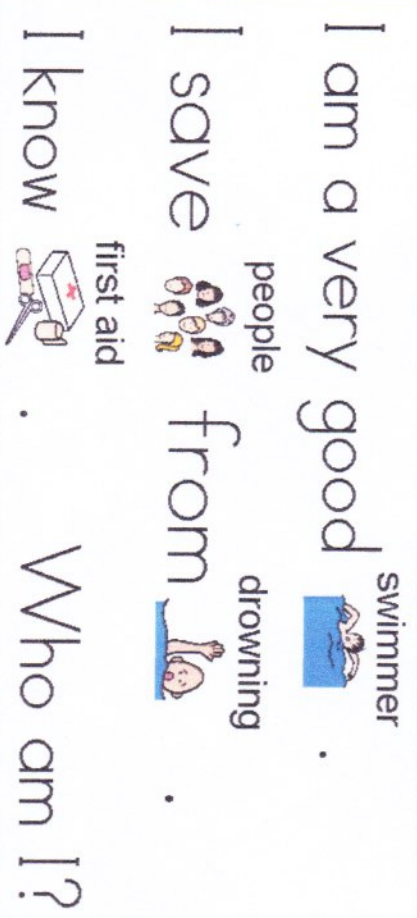 I am a very good swimmer.
I save people from drowning.
I know first aid. Who am I?